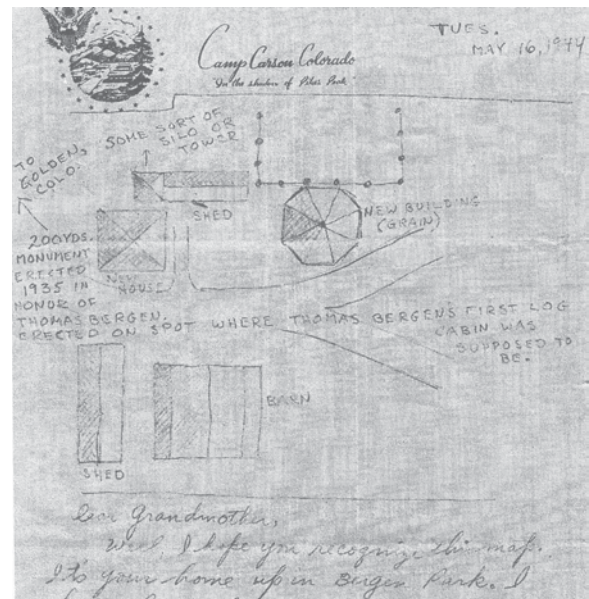 TUES.
MAY 16, 1944
Camp Carson Colorado
"In the shadow of Pikes Peak"
TO
GOLDEN,
COLO.
SOME SORT OF
SILO OR
TOWER
SHED
NEW BUILDING
(GRAIN)
200YDS.
MONUMENT
ERECTED
1935 IN
HONOR OF
THOMAS BERGEN.
ERECTED ON SPOT WHERE THOMAS BERGEN'S FIRST LOG
CABIN WAS
SUPPOSED TO
BE.
HOUSE
BARN
SHED
Dear Grandmother,
Well, I hope you recognize this map.
It's your home up in Bergen Park. I